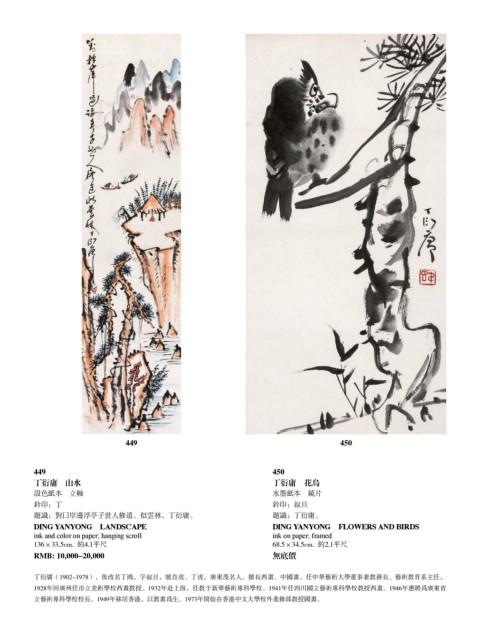 449
450
449
丁衍庸　山水
設色紙本　立軸
鈐印：丁
題識：對口岸邊浮亭子世人修道。似雲林，丁衍庸。
DING YANYONG　LANDSCAPE
ink and color on paper; hanging scroll
136 × 33.5cm.  約4.1平尺
RMB: 10,000–20,000
450
丁衍庸　花鳥
水墨紙本　鏡片
鈐印：叔旦
題識：丁衍庸。
DING YANYONG　FLOWERS AND BIRDS
ink on paper; framed
68.5 × 34.5cm.  約2.1平尺
無底價
丁衍庸（1902–1978），後改名丁鴻，字叔旦，號肖虎、丁虎，廣東茂名人。擅長西畫、中國畫。任中華藝術大學董事兼教務長、藝術教育系主任，
1928年回廣州任市立美術學校西畫教授。1932年赴上海，任教于新華藝術專科學校。1941年任四川國立藝術專科學校教授西畫。1946年應聘爲廣東省
立藝術專科學校校長。1949年移居香港，以教畫爲生。1973年開始在香港中文大學校外進修部教授國畫。
丁衍庸